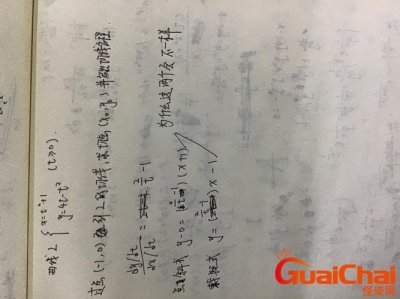 曲线L { x=t²+1
y=4t-t² (t≥0).
过点(-1,0)引L的切线,求切点(x₀,y₀)并写切线方程
dy/dt / dx/dt = 2/t - 1
点斜式 y-0=(2/t-1)(x+1)
斜截式 y=(2/t-1)x-1
为什么这两个会不一样
GuaiChai
怪柴网